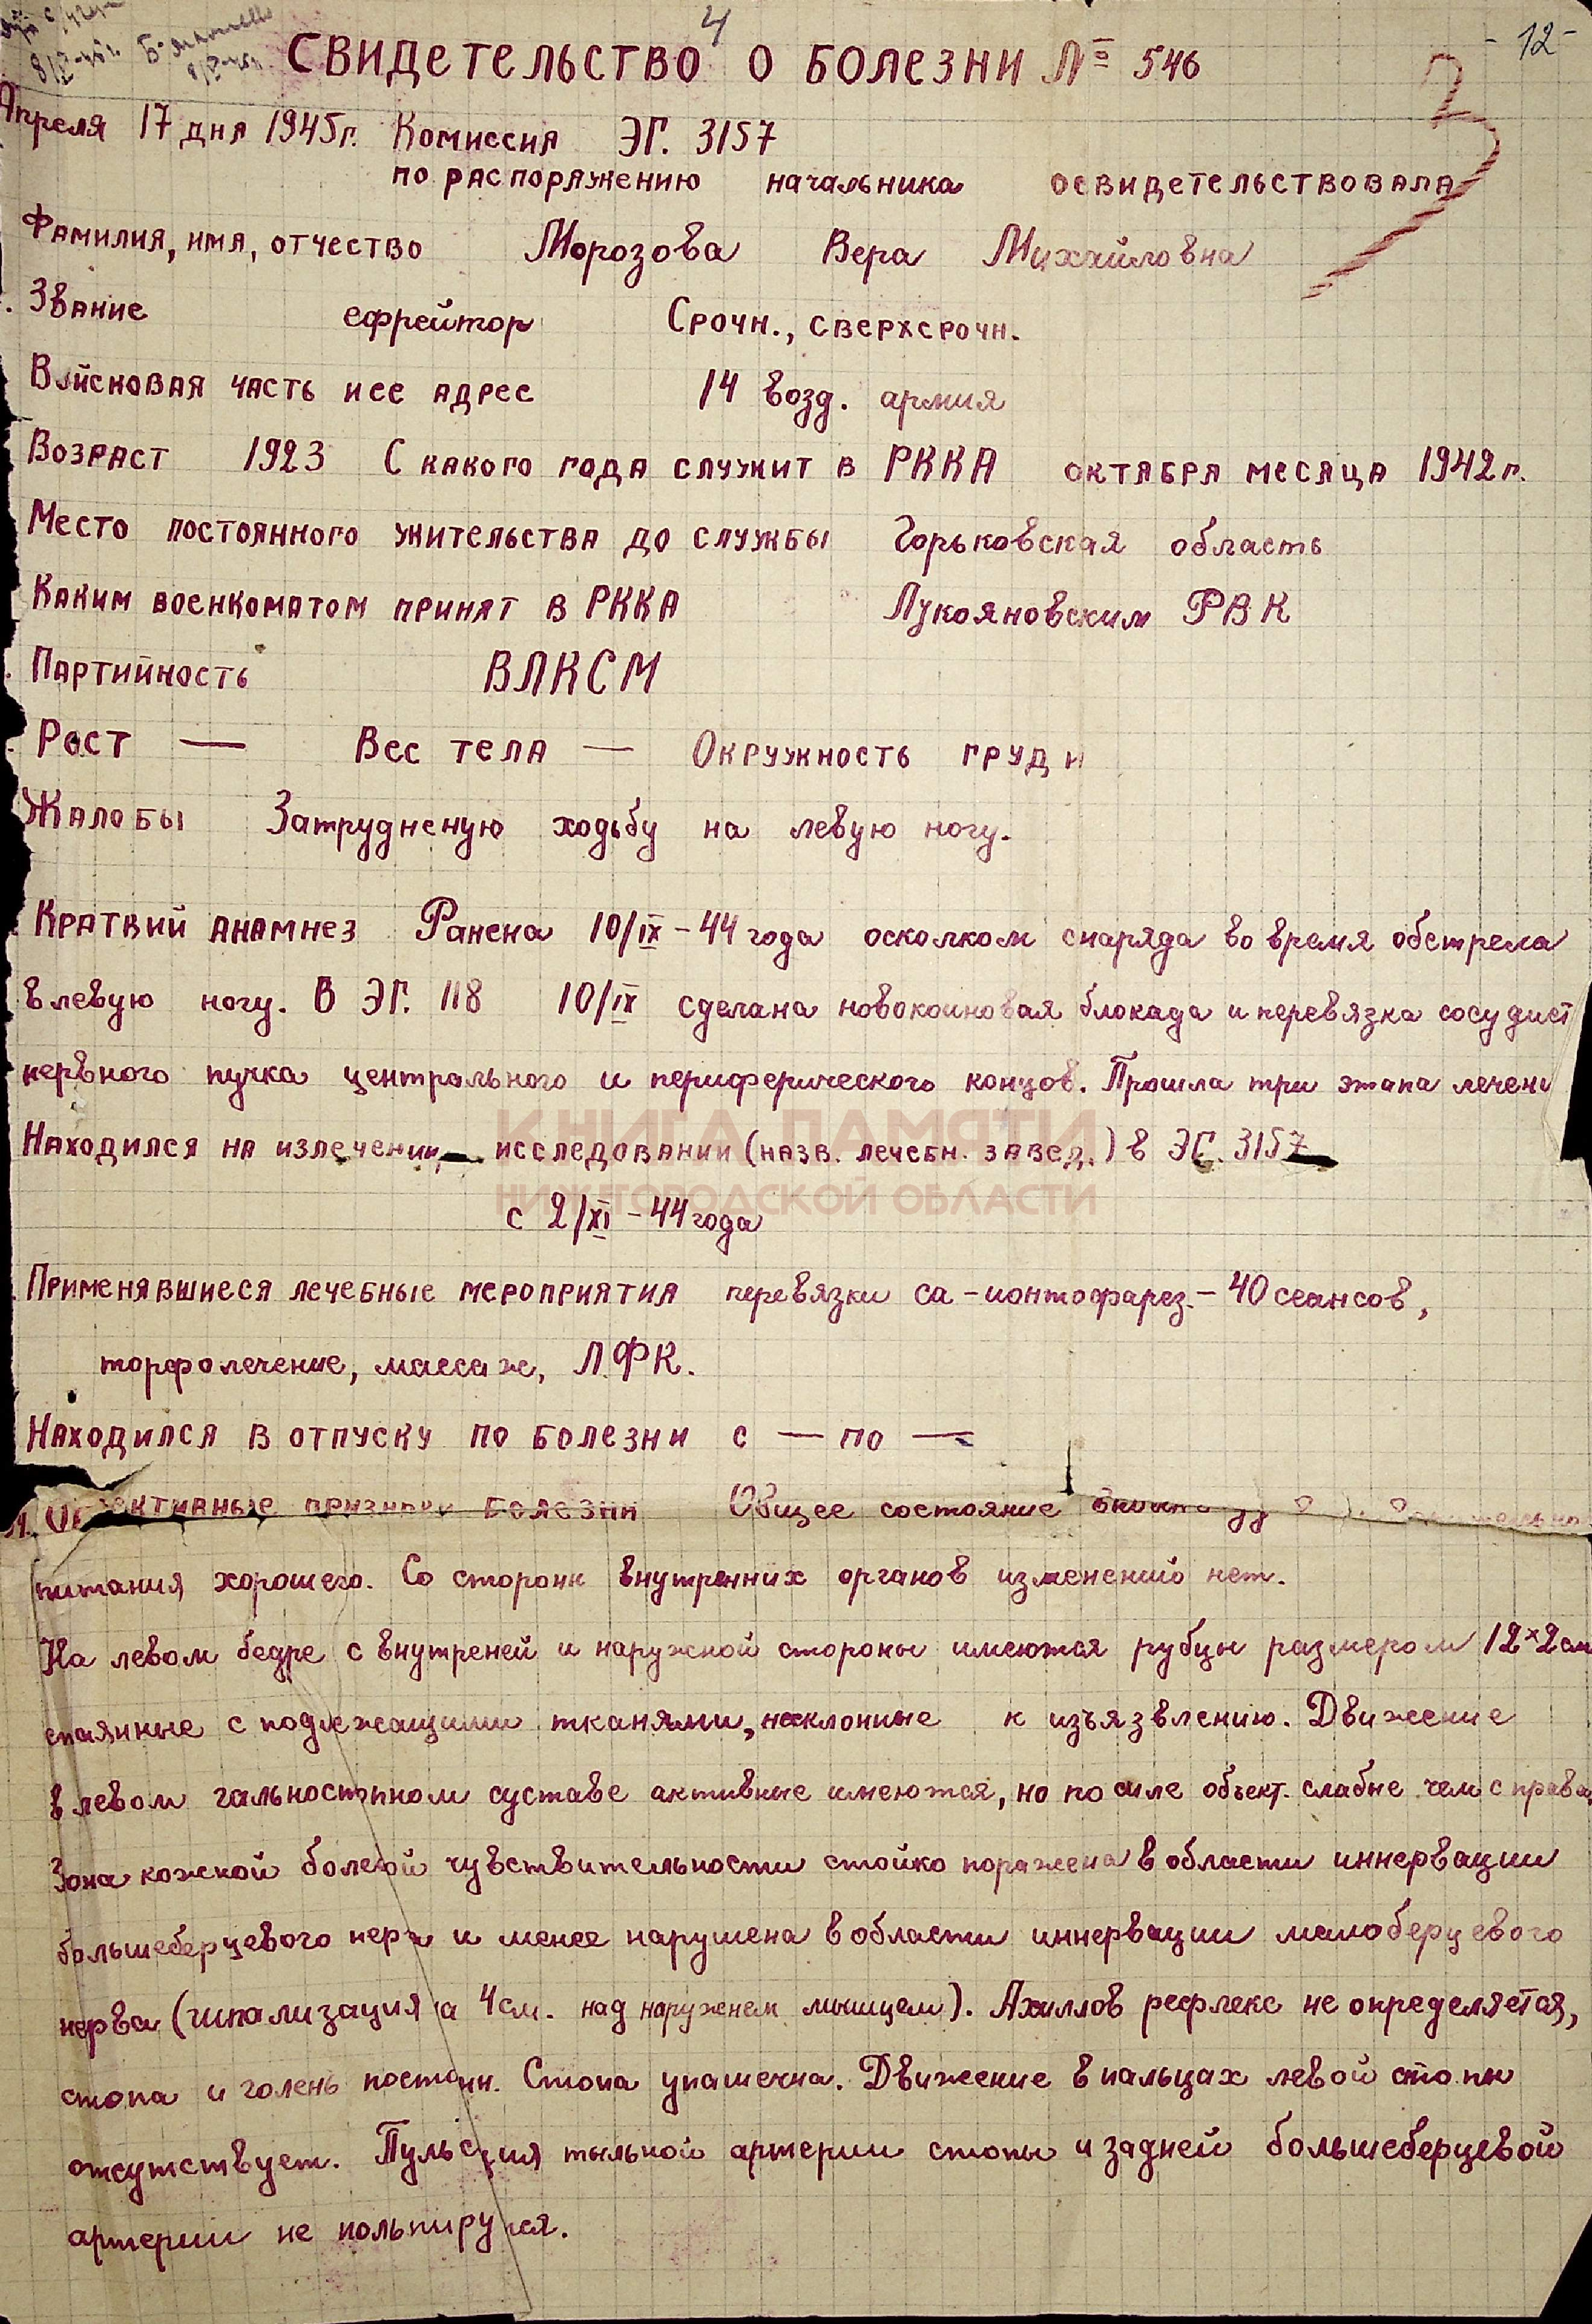 4
-12-
Свидетельство о болезни № 546
Апреля 17 дня 1945г. Комиссия ЭГ. 3157
по распоряжению начальника освидетельствовала
Фамилия, имя, отчество Морозова Вера Михайловна
Звание ефрейтор Срочн., сверхсрочн.
Войсковая часть и ее адрес 14 возд. армия
Возраст 1923 С какого года служит в РККА октября месяца 1942г.
Место постоянного жительства до службы Горьковская область
Каким военкоматом принят в РККА Лукояновским РВК
Партийность ВЛКСМ
Рост — Вес тела — Окружность груди
Жалобы Затрудненую ходьбу на левую ногу.
Краткий анамнез Ранена 10/IX-44 года осколком снаряда во время обстрела
в левую ногу. В ЭГ. 118 10/IX сделана новокоиновая блокада и перевязка сосудист
нервного пучка центрального и периферического концов. Прошла три этапа лечени
Находился на излечении, исследовании (назв. лечебн. завед.) в ЭГ. 3157
КНИГА ПАМЯТИ
НИЖЕГОРОДСКОЙ ОБЛАСТИ
с 2/XI-44 года
Применявшиеся лечебные мероприятия перевязки са-ионтофарез.- 40 сеансов,
торфолечение, массаж, Л.ФК.
Находился в отпуску по болезни с — по —
признаки болезни Общее состояние
питания хорошего. Со стороны внутренних органов изменений нет.
На левом бедре с внутреней и наружной стороны имеются рубцы размером 12×2см
спаянные с подлежащими тканями, несклонные к изъязвлению. Движение
в левом гальностопном суставе активные имеются, но по силе объект. слабые чем справа.
Зона кожной болевой чувствительности стойко поражена в области иннервации
большеберцевого нерва и менее нарушена в области иннервации малоберцевого
нерва (гипализация на 4см. над наружнем мыщцем). Ахиллов рефлекс не определяется,
стопа и голень Стопа упашечна. Движение в пальцах левой стопы
отсутствует. Пульсция тыльной артерии стопы и задней большеберцевой
артерии не польпируюся.